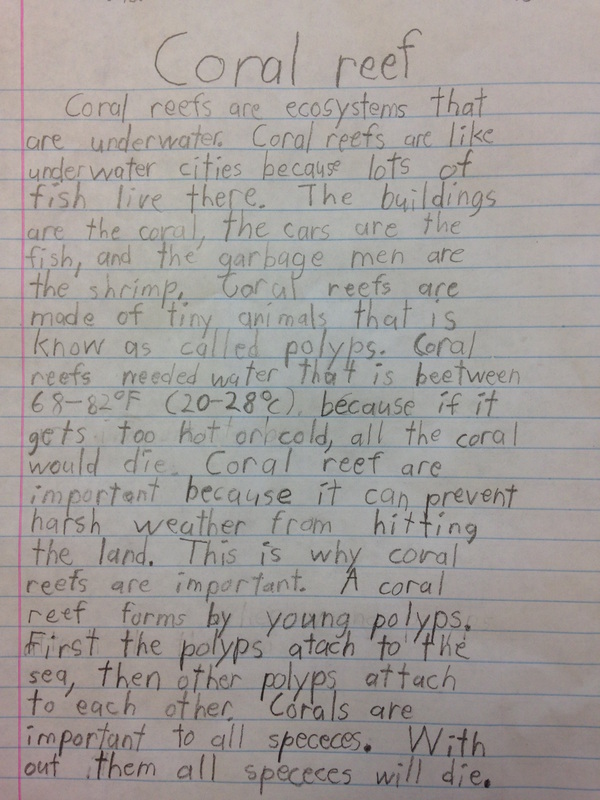 Coral reef
Coral reefs are ecosystems that
are underwater. Coral reefs are like
underwater cities because lots of
fish live there. The buildings
are the coral, the cars are the
fish, and the garbage men are
the shrimp. Coral reefs are
made of tiny animals that is
know as called polyps. Coral
reefs needed water that is beetween
68-82°F (20-28°c) because if it
gets too hot or cold, all the coral
would die. Coral reef are
important because it can prevent
harsh weather from hitting
the land. This is why coral
reefs are important. A coral
reef forms by young polyps.
First the polyps atach to the
sea, then other polyps attach
to each other. Corals are
important to all spececes. With
out them all spececes will die.